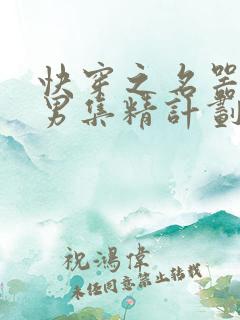 快穿之名器
男集精計劃
祝鴻偉
未任同意禁止轉載